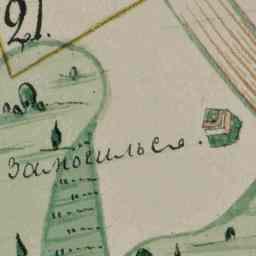 21.
Замогилье.